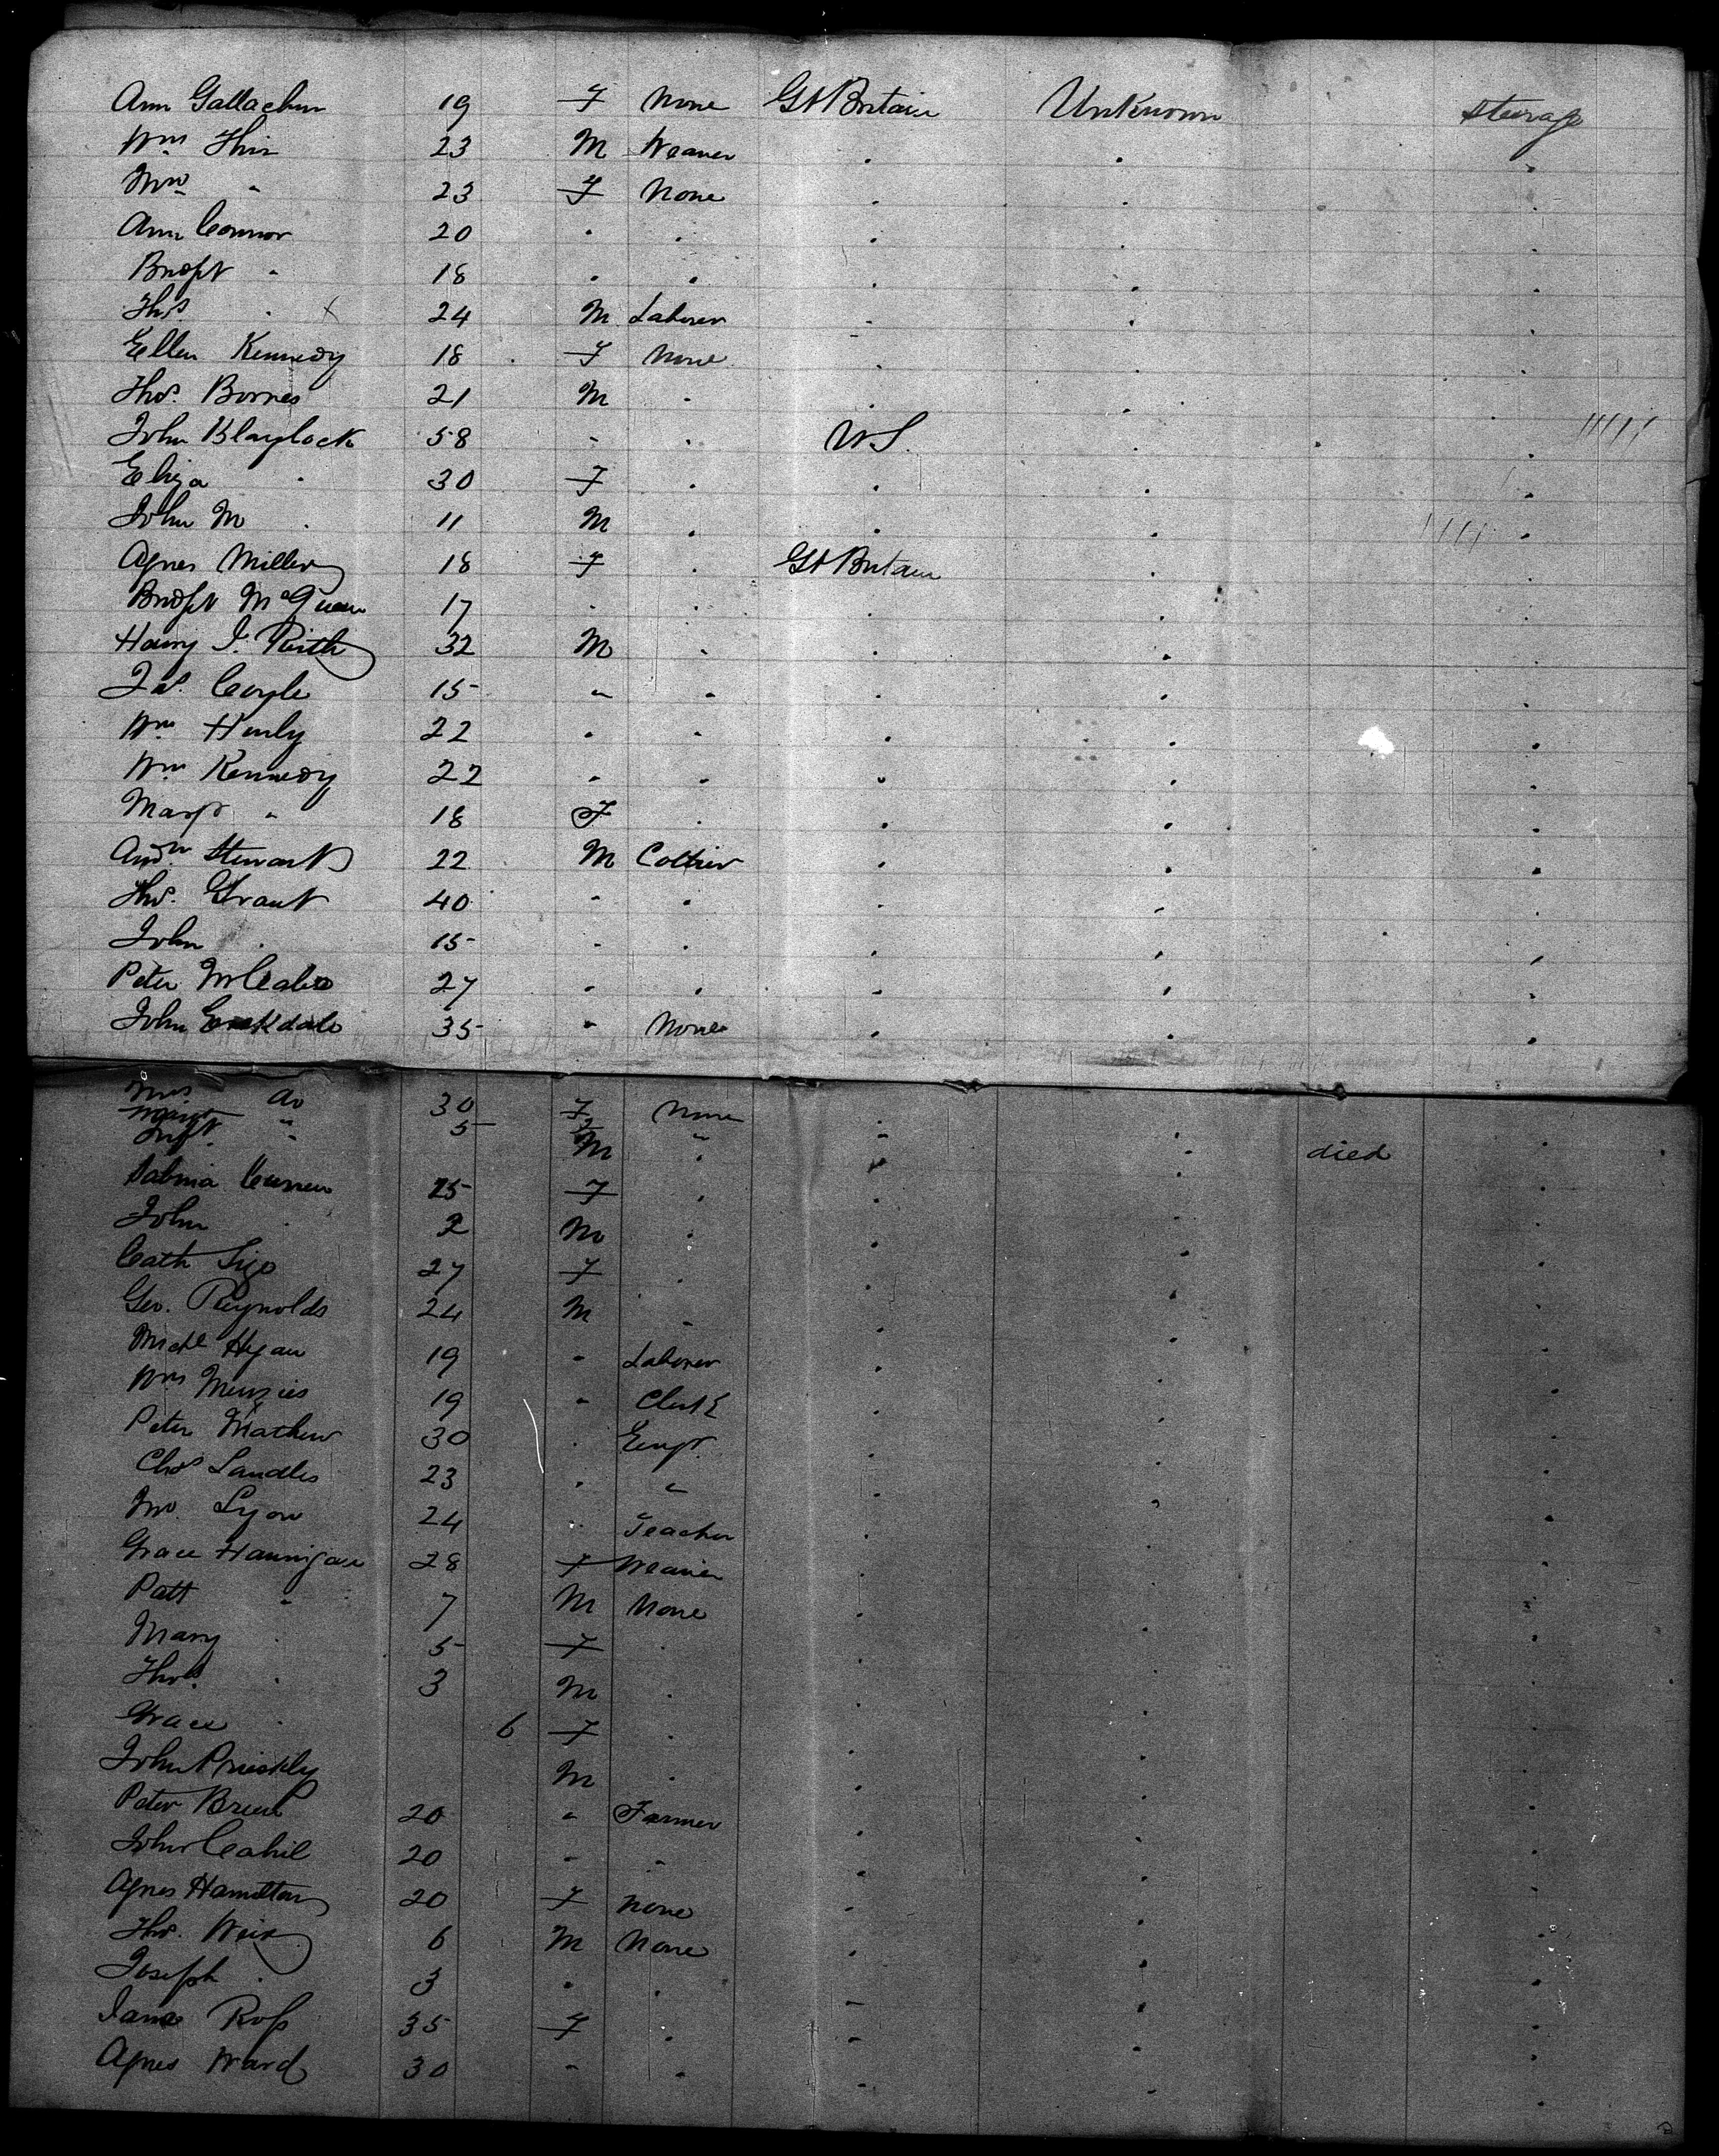 Ann Gallacher 19 F None Gt Britain Unknown Steerage
Wm 23 M Weaver . . .
Mrs " 23 F None . . .
Ann Connor 20 . . . . .
Bridgt " 18 . . . . .
Thos . x 24 M Laborer . . .
Ellen Kennedy 18 F None . . .
Thos. Bornes 21 M . . . .
John Blaylock 58 " . U S. . .
Eliza . 30 F . . . .
John M . 11 M . . . .
Agnes Miller 18 F . Gt Britain . .
Bridgt 17 . . . . .
Harry J. 32 M . . . .
Jas. Coyle 15 " . . . .
Wm Henly 22 . . . . .
Wm Kennedy 22 . . . . .
Margt " 18 F . . . .
Andw Stewart 22 M Collier . . .
Thos. Grant 40 " . . . .
John . 15 " . . . .
Peter McCabe 27 . . . . .
John 35 " None . . .
Mrs Do 30 F None . . .
Margt " 5 F
Inft. " M " . . died .
Sabina Curren 25 F . . . .
John . 2 M . . . .
Cath 27 F . . . .
Geo. Reynolds 24 M " . . .
Michl 19 " Laborer . . .
Wm Menzies 19 " Clerk . . .
Peter Mathew 30 . Engr. . . .
Chas Landles 23 . " . . .
Lyon 24 " Teacher . . .
Grace Hannigan 28 F Weaver . . .
Patt " 7 M None . . .
Mary . 5 F . . . .
Thos. . 3 M . . . .
Grace . 6 F . . . .
John Priestly M . . . .
Peter Brien 20 " Farmer . . .
John Cahil 20 " " . . .
Agnes Hamilton 20 F None . . .
Thos. Weir 6 M None . . .
Joseph . 3 . . . . .
Jane Ross 35 F . . . .
Agnes Ward 30 " . . . .